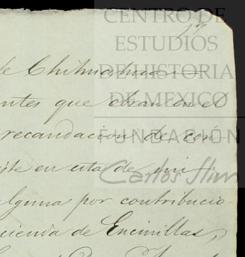 CENTRO DE
ESTUDIOS
DE HISTORIA
DE MEXICO
FUNDACIÓN
Carlos Slim
de Chihuahua
ntes que obran en el
recaudacion de con
te en esta de mi
lguna por contribucio
cienda de Encinillas,